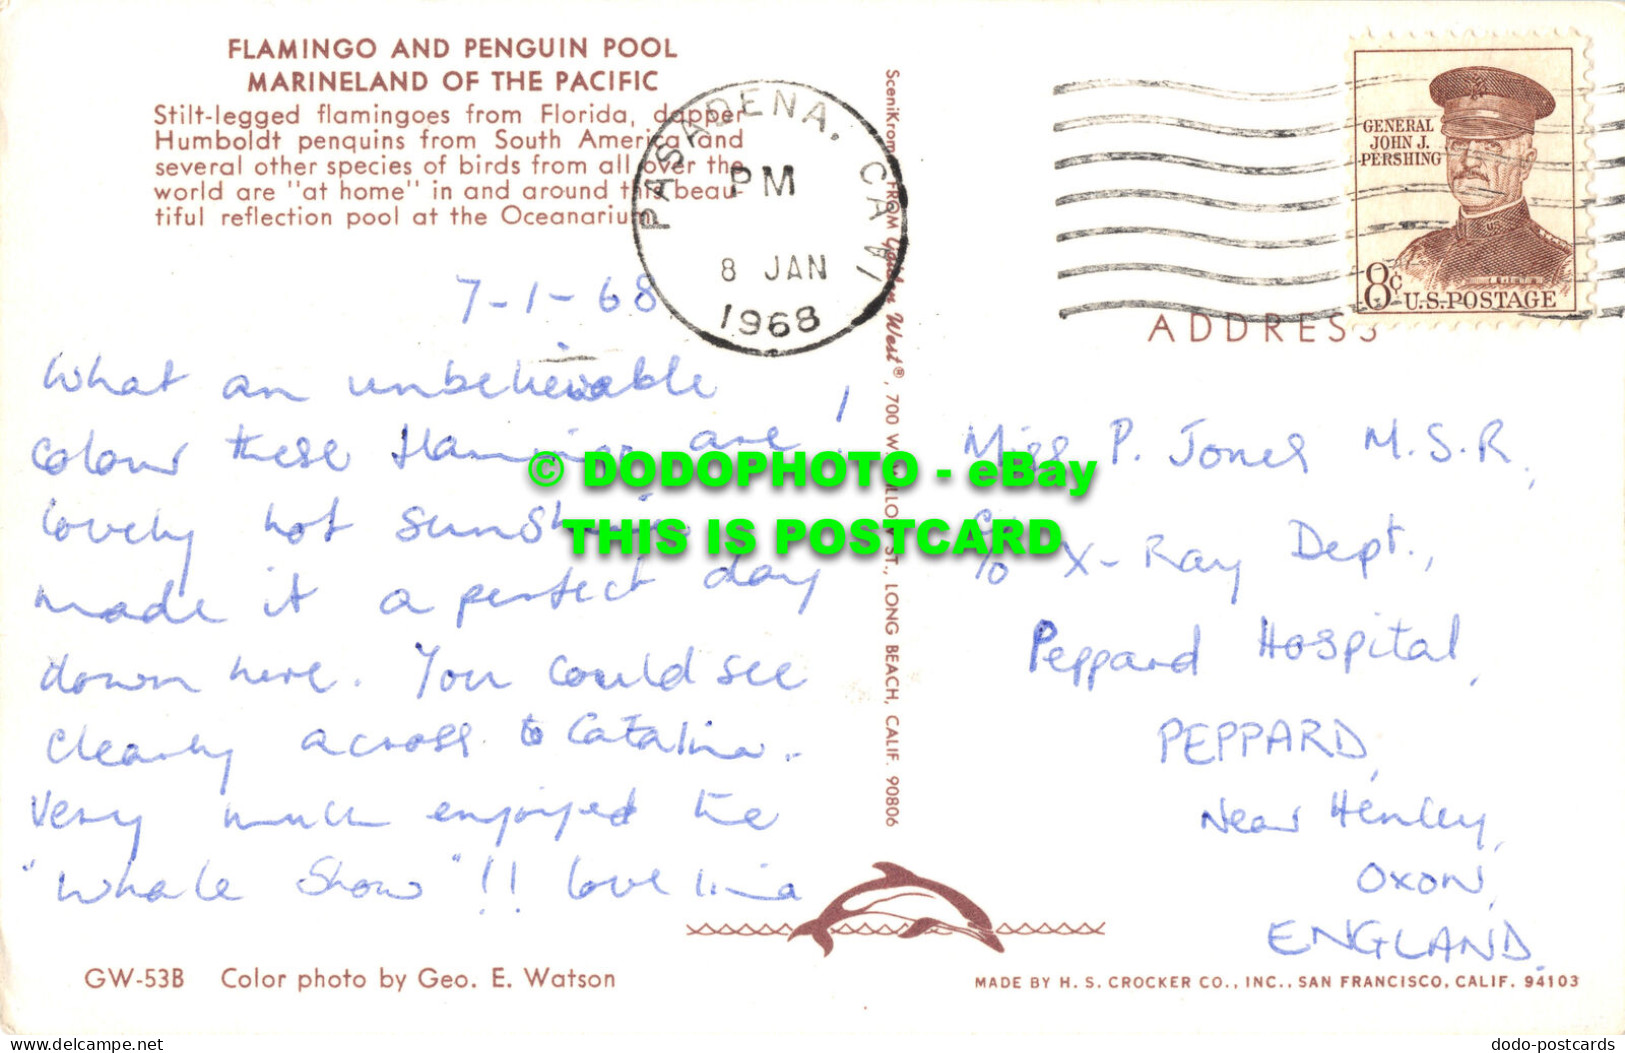 FLAMINGO AND PENGUIN POOL
MARINELAND OF THE PACIFIC
Stilt-legged flamingoes from Florida, dapper
Humboldt penquins from South America and
several other species of birds from all over the
world are "at home" in and around this beau
tiful reflection pool at the Oceanarium.
PASADENA, CA
PM
8 JAN
1968
GENERAL
JOHN J.
PERSHING
8c U.S. POSTAGE
ADDRESS
7-1-68
What an unbelievable
colour these flamingos are!
lovely hot sunshine
made it a perfect day
down here. You could see
clearly across to Catalina.
Very much enjoyed the
"Whale Show"!! love
SceniKrom FROM Golden West®, 700 W. WILLOW ST., LONG BEACH, CALIF. 90806
Miss P. Jones M.S.R,
c/o X-Ray Dept.,
Peppard Hospital,
PEPPARD,
Near Henley,
OXON,
ENGLAND.
© DODOPHOTO - eBay
THIS IS POSTCARD
GW-53B Color photo by Geo. E. Watson
MADE BY H. S. CROCKER CO., INC., SAN FRANCISCO, CALIF. 94103
Delcampe.net
dodo-postcards